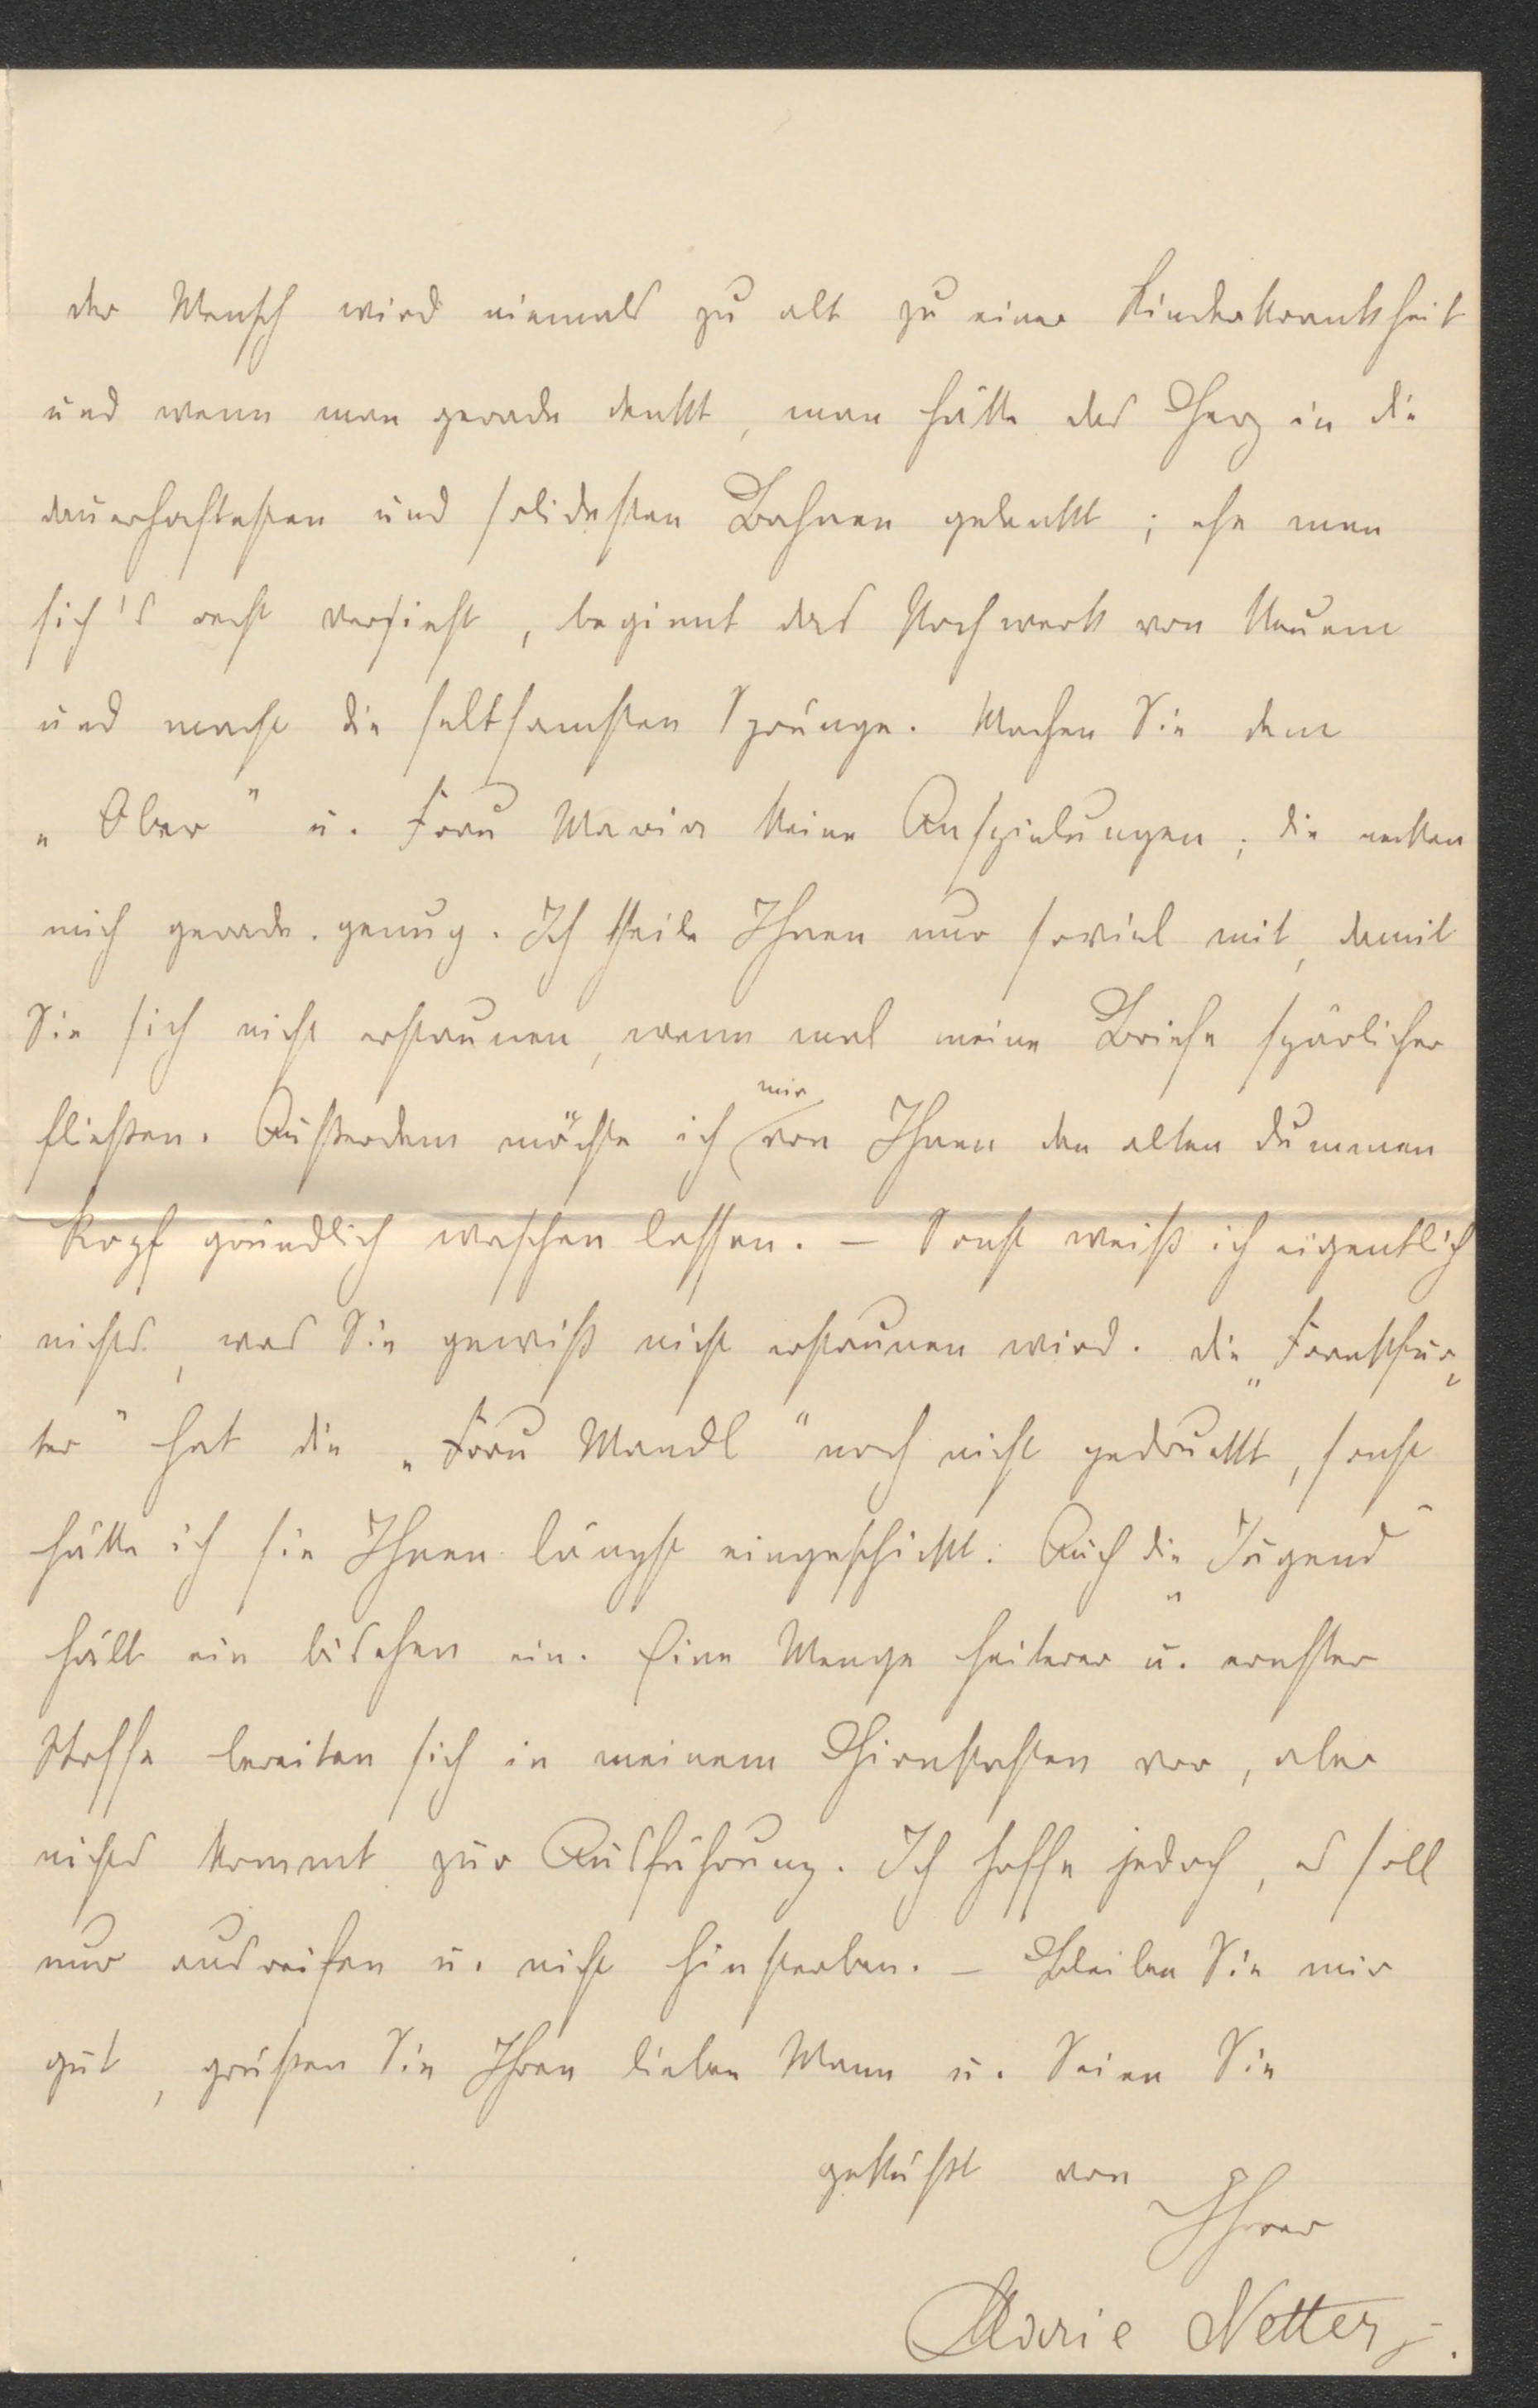 der Mensch wird niemals zu alt zu einer Kinderkrankheit
und wenn man gerade denkt, man hätte das Herz in die
dauerhaftesten und solidesten Bahnen gelenkt; ehe man
sich's recht versieht, beginnt das Uhrwerk von Neuem
und macht die seltsamsten Sprünge. Machen Sie dem
„Ober" u. Frau Maria keine Anspielungen; die necken
mich gerade genug. Ich theile Ihnen nur soviel mit, damit
Sie sich nicht erstaunen, wenn mal meine Briefe spärlicher
fließen. Außerdem möchte ich mir von Ihnen den alten dummen
Kopf gründlich waschen lassen. – Sonst weiß ich eigentlich
nichts, was Sie gewiß nicht erstaunen wird. die „Frankfur„
ter" hat die „Frau Mandl" noch nicht gedruckt, sonst
hätte ich sie Ihnen längst eingeschickt. Auch die „Jugend"
hält ein bischen ein. Eine Menge heiterer u. ernster
Stoffe bereiten sich in meinem Hirnkasten vor, aber
nichts kommt zur Ausführung. Ich hoffe jedoch, es soll
nur ausreifen u. nicht hinsterben. – Bleiben Sie mir
gut, grüßen Sie Ihren lieben Mann u. Seien Sie
geküßt von
Ihrer
Marie Netter